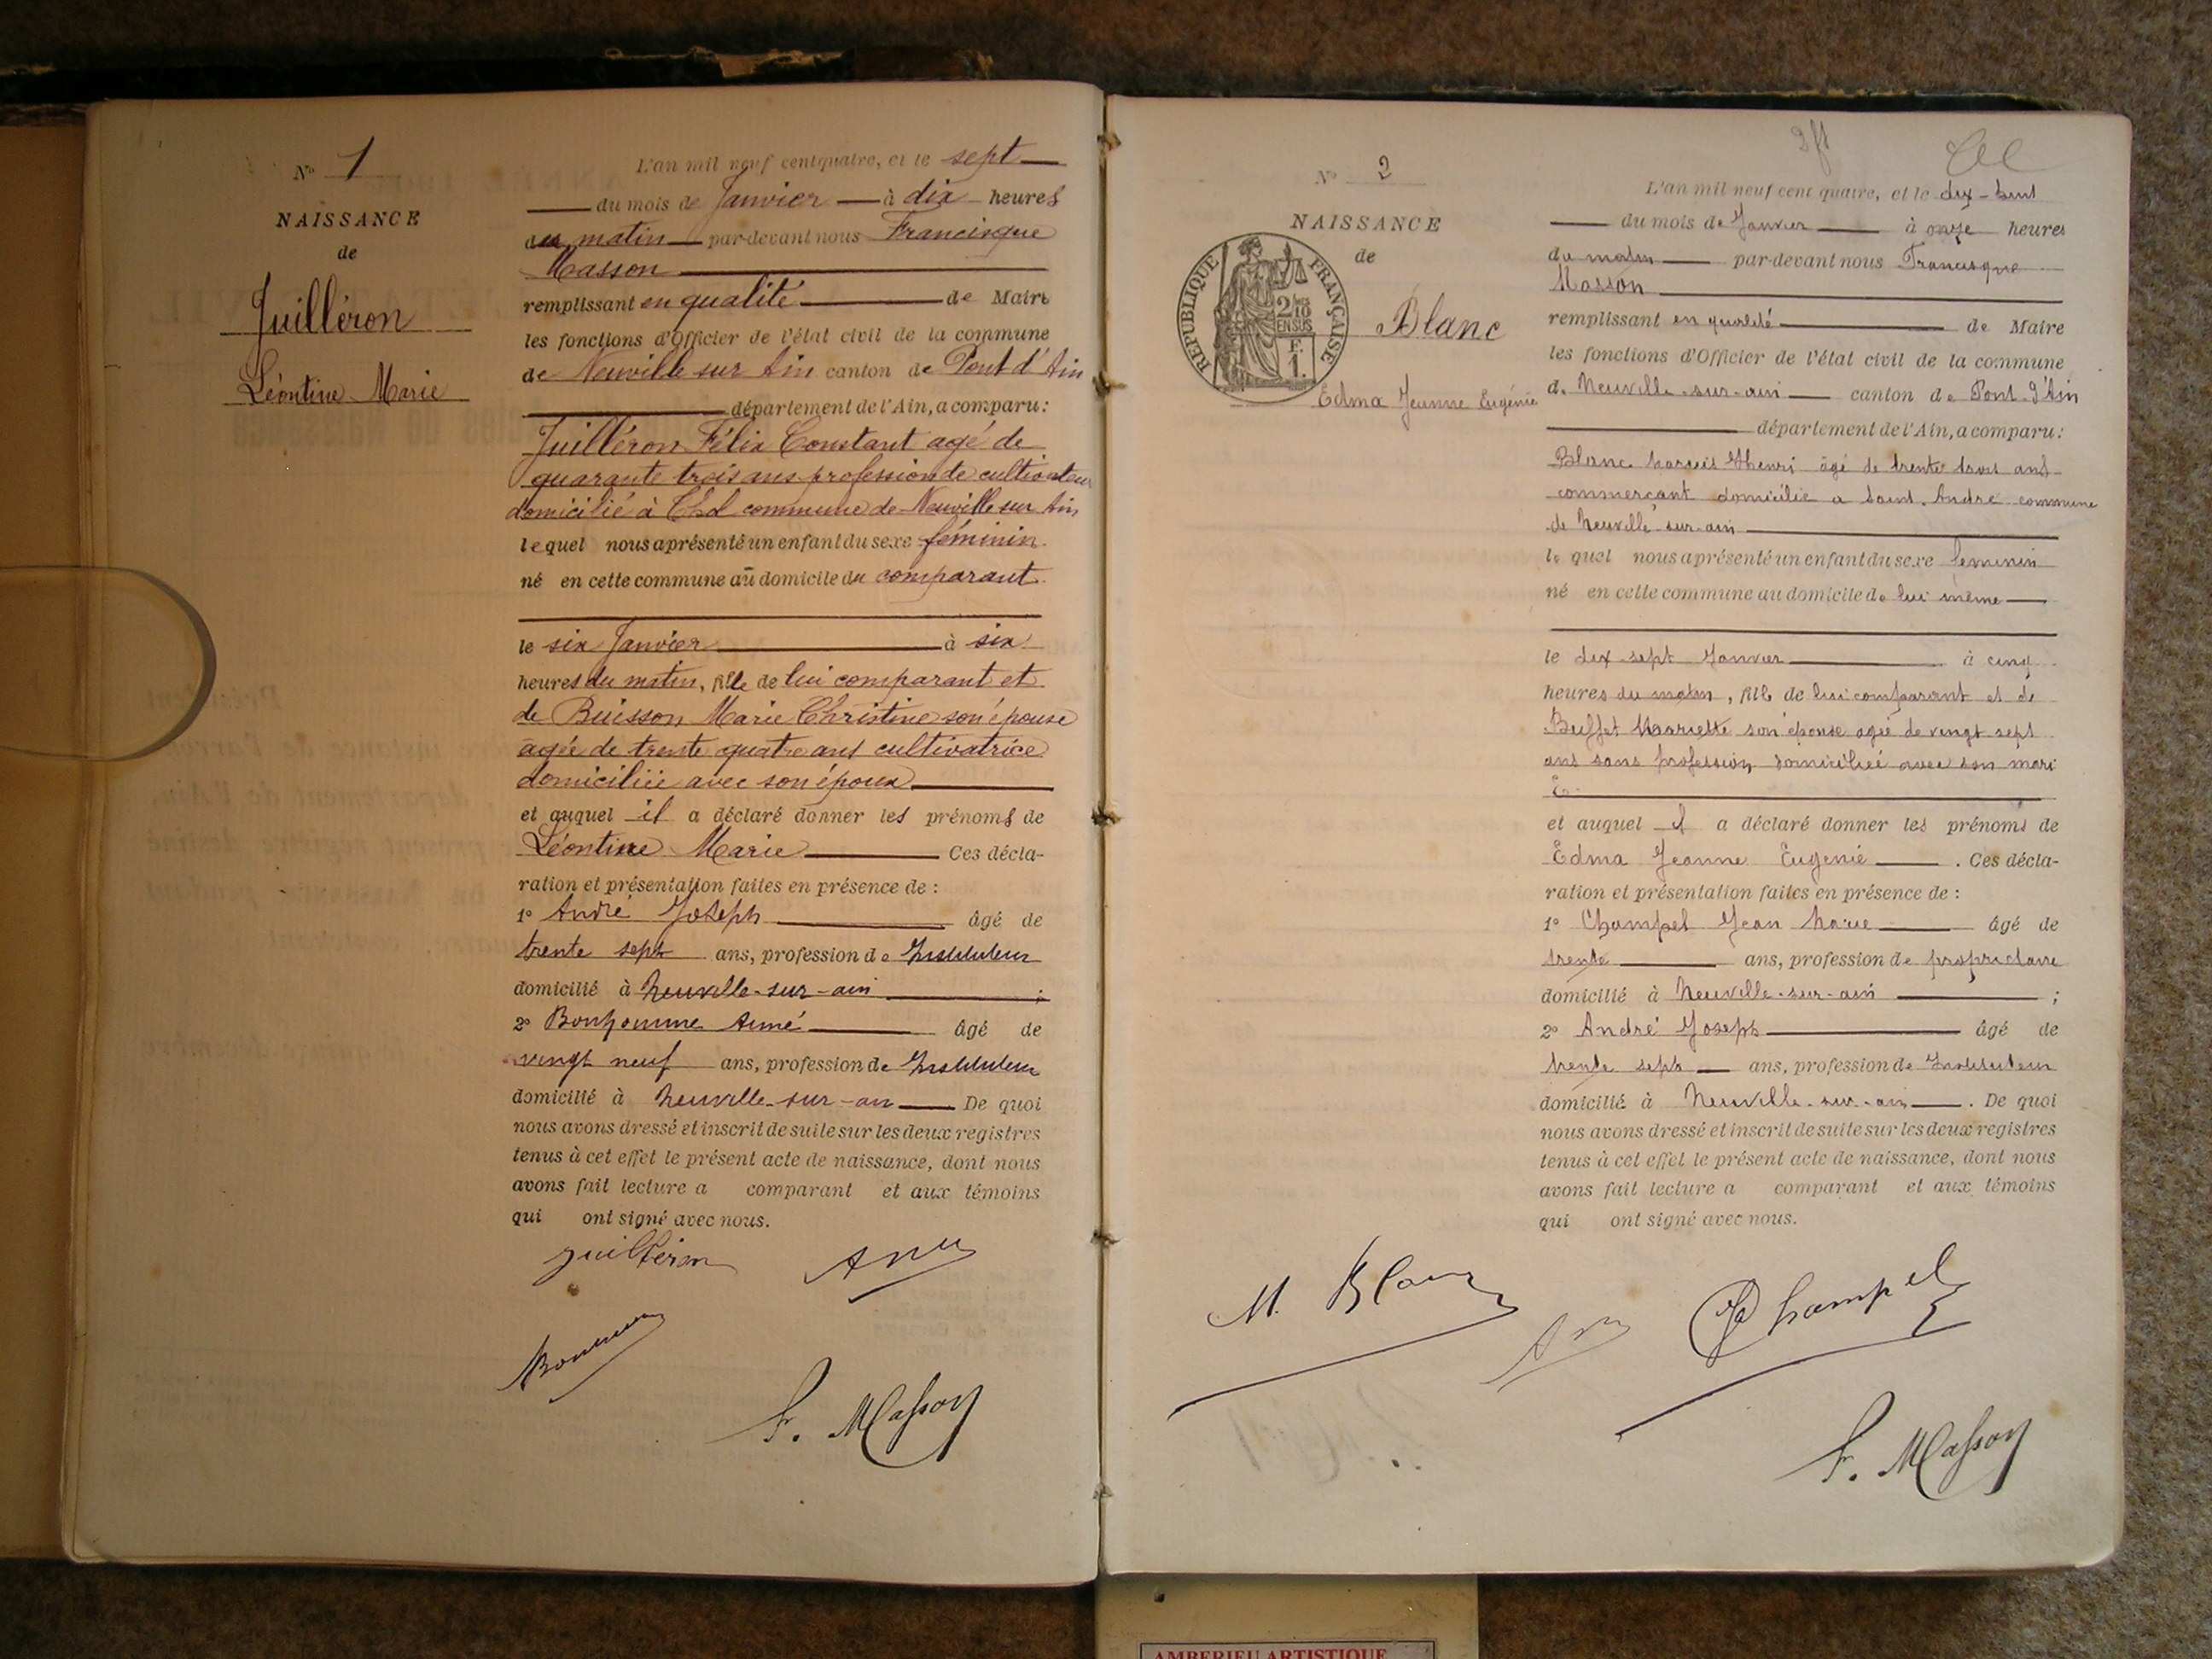 No 1
NAISSANCE
de
Juilléron
Léontine Marie
L'an mil neuf cent quatre, et le sept
du mois de Janvier à dix heures
du matin par-devant nous Francisque
Masson
remplissant en qualité de Maire
les fonctions d'Officier de l'état civil de la commune
de Neuville sur Ain canton de Pont d'Ain
département de l'Ain, a comparu:
Juilléron Félix Constant agé de
quarante trois ans profession de cultivateur
domicilié à commune de Neuville sur Ain
lequel nous a présenté un enfant du sexe féminin
né en cette commune au domicile du comparant
le six Janvier à six
heures du matin, fille de lui comparant et
de Buisson Marie Christine son épouse
agée de trente quatre ans cultivatrice
domiciliée avec son époux
et auquel il a déclaré donner les prénoms de
Léontine Marie Ces décla-
ration et présentation faites en présence de :
1° André Joseph âgé de
trente sept ans, profession de Instituteur
domicilié à Neuville-sur-ain ;
2° Bonhomme Aimé âgé de
vingt neuf ans, profession de Instituteur
domicilié à Neuville-sur-ain De quoi
nous avons dressé et inscrit de suite sur les deux registres
tenus à cet effet le présent acte de naissance, dont nous
avons fait lecture a comparant et aux témoins
qui ont signé avec nous.
Juilléron
F. Masson
No 2
NAISSANCE
de
REPUBLIQUE FRANÇAISE
2/10
EN SUS
F.
1.
Blanc
Edma Jeanne Eugénie
L'an mil neuf cent quatre, et le dix-huit
du mois de Janvier à onze heures
du matin par-devant nous Francisque
Masson
remplissant en qualité de Maire
les fonctions d'Officier de l'état civil de la commune
de Neuville-sur-ain canton de Pont d'Ain
département de l'Ain, a comparu:
Blanc Henri âgé de trente trois ans
commerçant domicilié a Saint André commune
de Neuville-sur-ain
le quel nous a présenté un enfant du sexe feminin
né en cette commune au domicile de lui même
le dix-sept Janvier à cinq
heures du matin, fille de lui comparant et de
Buffet Mariette son épouse agée de vingt sept
ans sans profession domiciliée avec son mari
et auquel il a déclaré donner les prénoms de
Edma Jeanne Eugenie . Ces décla-
ration et présentation faites en présence de :
1° Champel Jean Marie âgé de
trente ans, profession de propriétaire
domicilié à Neuville-sur-ain ;
2° André Joseph âgé de
trente sept ans, profession de Instituteur
domicilié à Neuville-sur-ain . De quoi
nous avons dressé et inscrit de suite sur les deux registres
tenus à cet effet le présent acte de naissance, dont nous
avons fait lecture a comparant et aux témoins
qui ont signé avec nous.
M. Blanc
Champel
F. Masson
AMBERIEU ARTISTIQUE